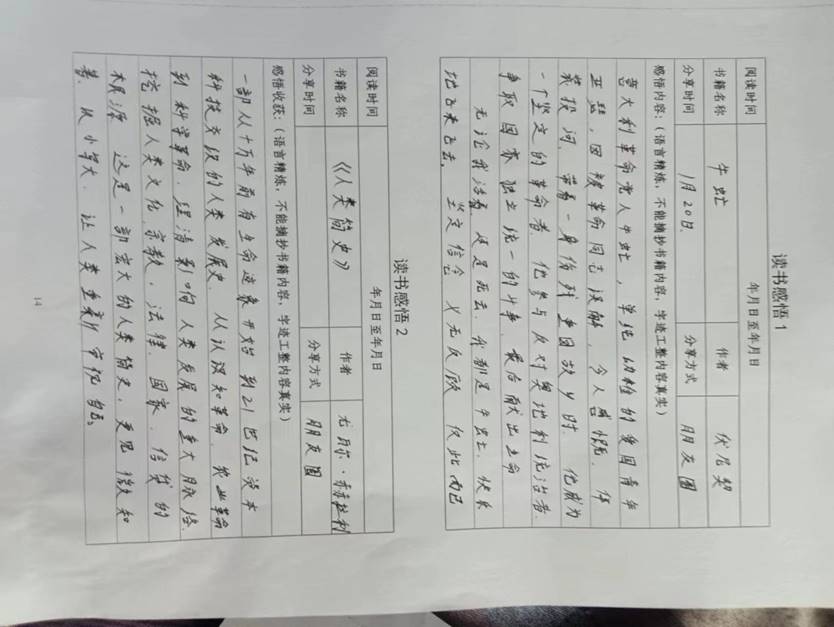 读书感悟1
阅读时间 年月日至年月日
书籍名称 牛虻 作者 伏尼契
分享时间 1月20日. 分享方式 朋友圈
感悟内容:(语言精炼,不能摘抄书籍内容,字迹工整内容真实)
意大利革命党人牛虻,单纯幼稚的爱国青年
亚瑟,因被革命同志误解,令人
装投河,带着一身伤残重回故乡时,他成为
一个坚定的革命者,他参与反对奥地利统治者
争取国家独立统一的斗争,最后献出生命
无论我活着,还是死去,我都是牛虻,快乐
地飞来飞去,坚定信念 义无反顾 仅此而已
读书感悟2
阅读时间 年月日至年月日
书籍名称 《人类简史》 作者 尤瓦尔·赫拉利
分享时间 分享方式 朋友圈
感悟收获:(语言精炼,不能摘抄书籍内容,字迹工整内容真实)
一部从十万年前有生命迹象开始到21世纪资本
科技交织的人类发展史,从认识知革命、农业革命
到科学革命,理清影响人类发展的重大脉络.
挖掘人类文化、宗教、法律、国家、信贷的
根源 这是一部宏大的人类简史,更见微知
著、以小等大,让人类重新审视自己。
14